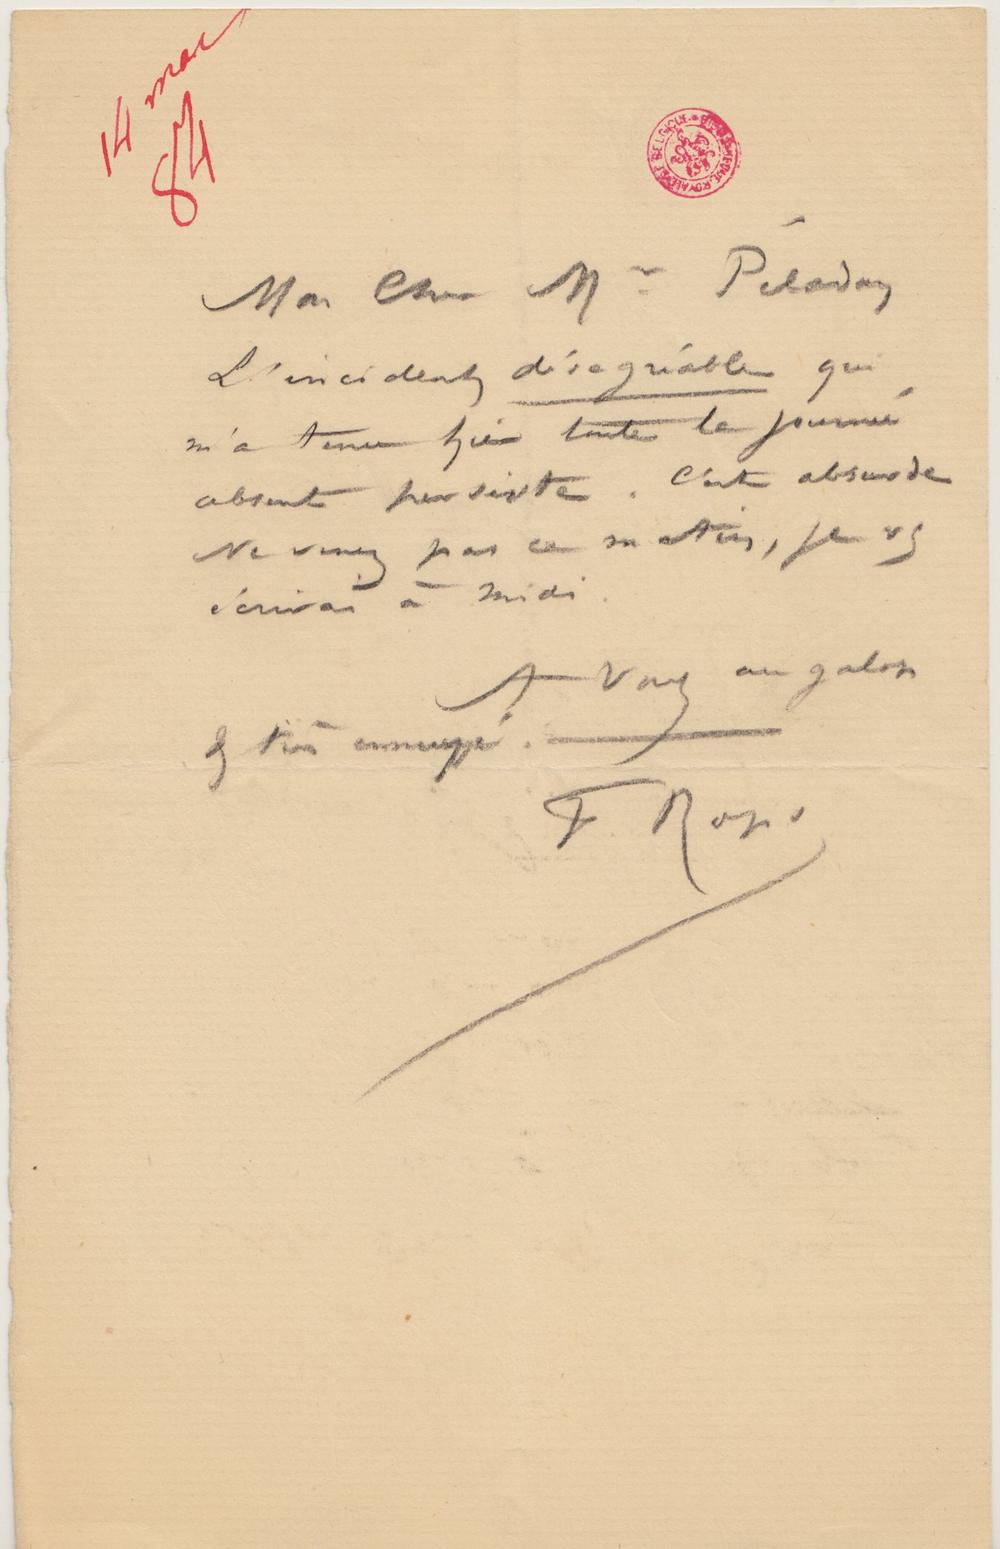 14 mar
84
BIBLIOTHÈQUE ROYALE DE BELGIQUE
Mon Cher Mr Péladan
L'incident désagréable qui
m'a tenu hier toute la journée
absent persiste. C'est absurde
Ne venez pas ce matin, je vs
écrirai à midi.
A Vous au galop
& très ennuyé.
F Rops